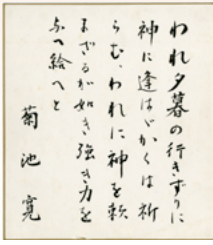 われ夕暮の行きずりに
神に逢はゞかくは祈
らむ、われに神を頼
まざるが如き強き力を
与へ給へと
菊池寛